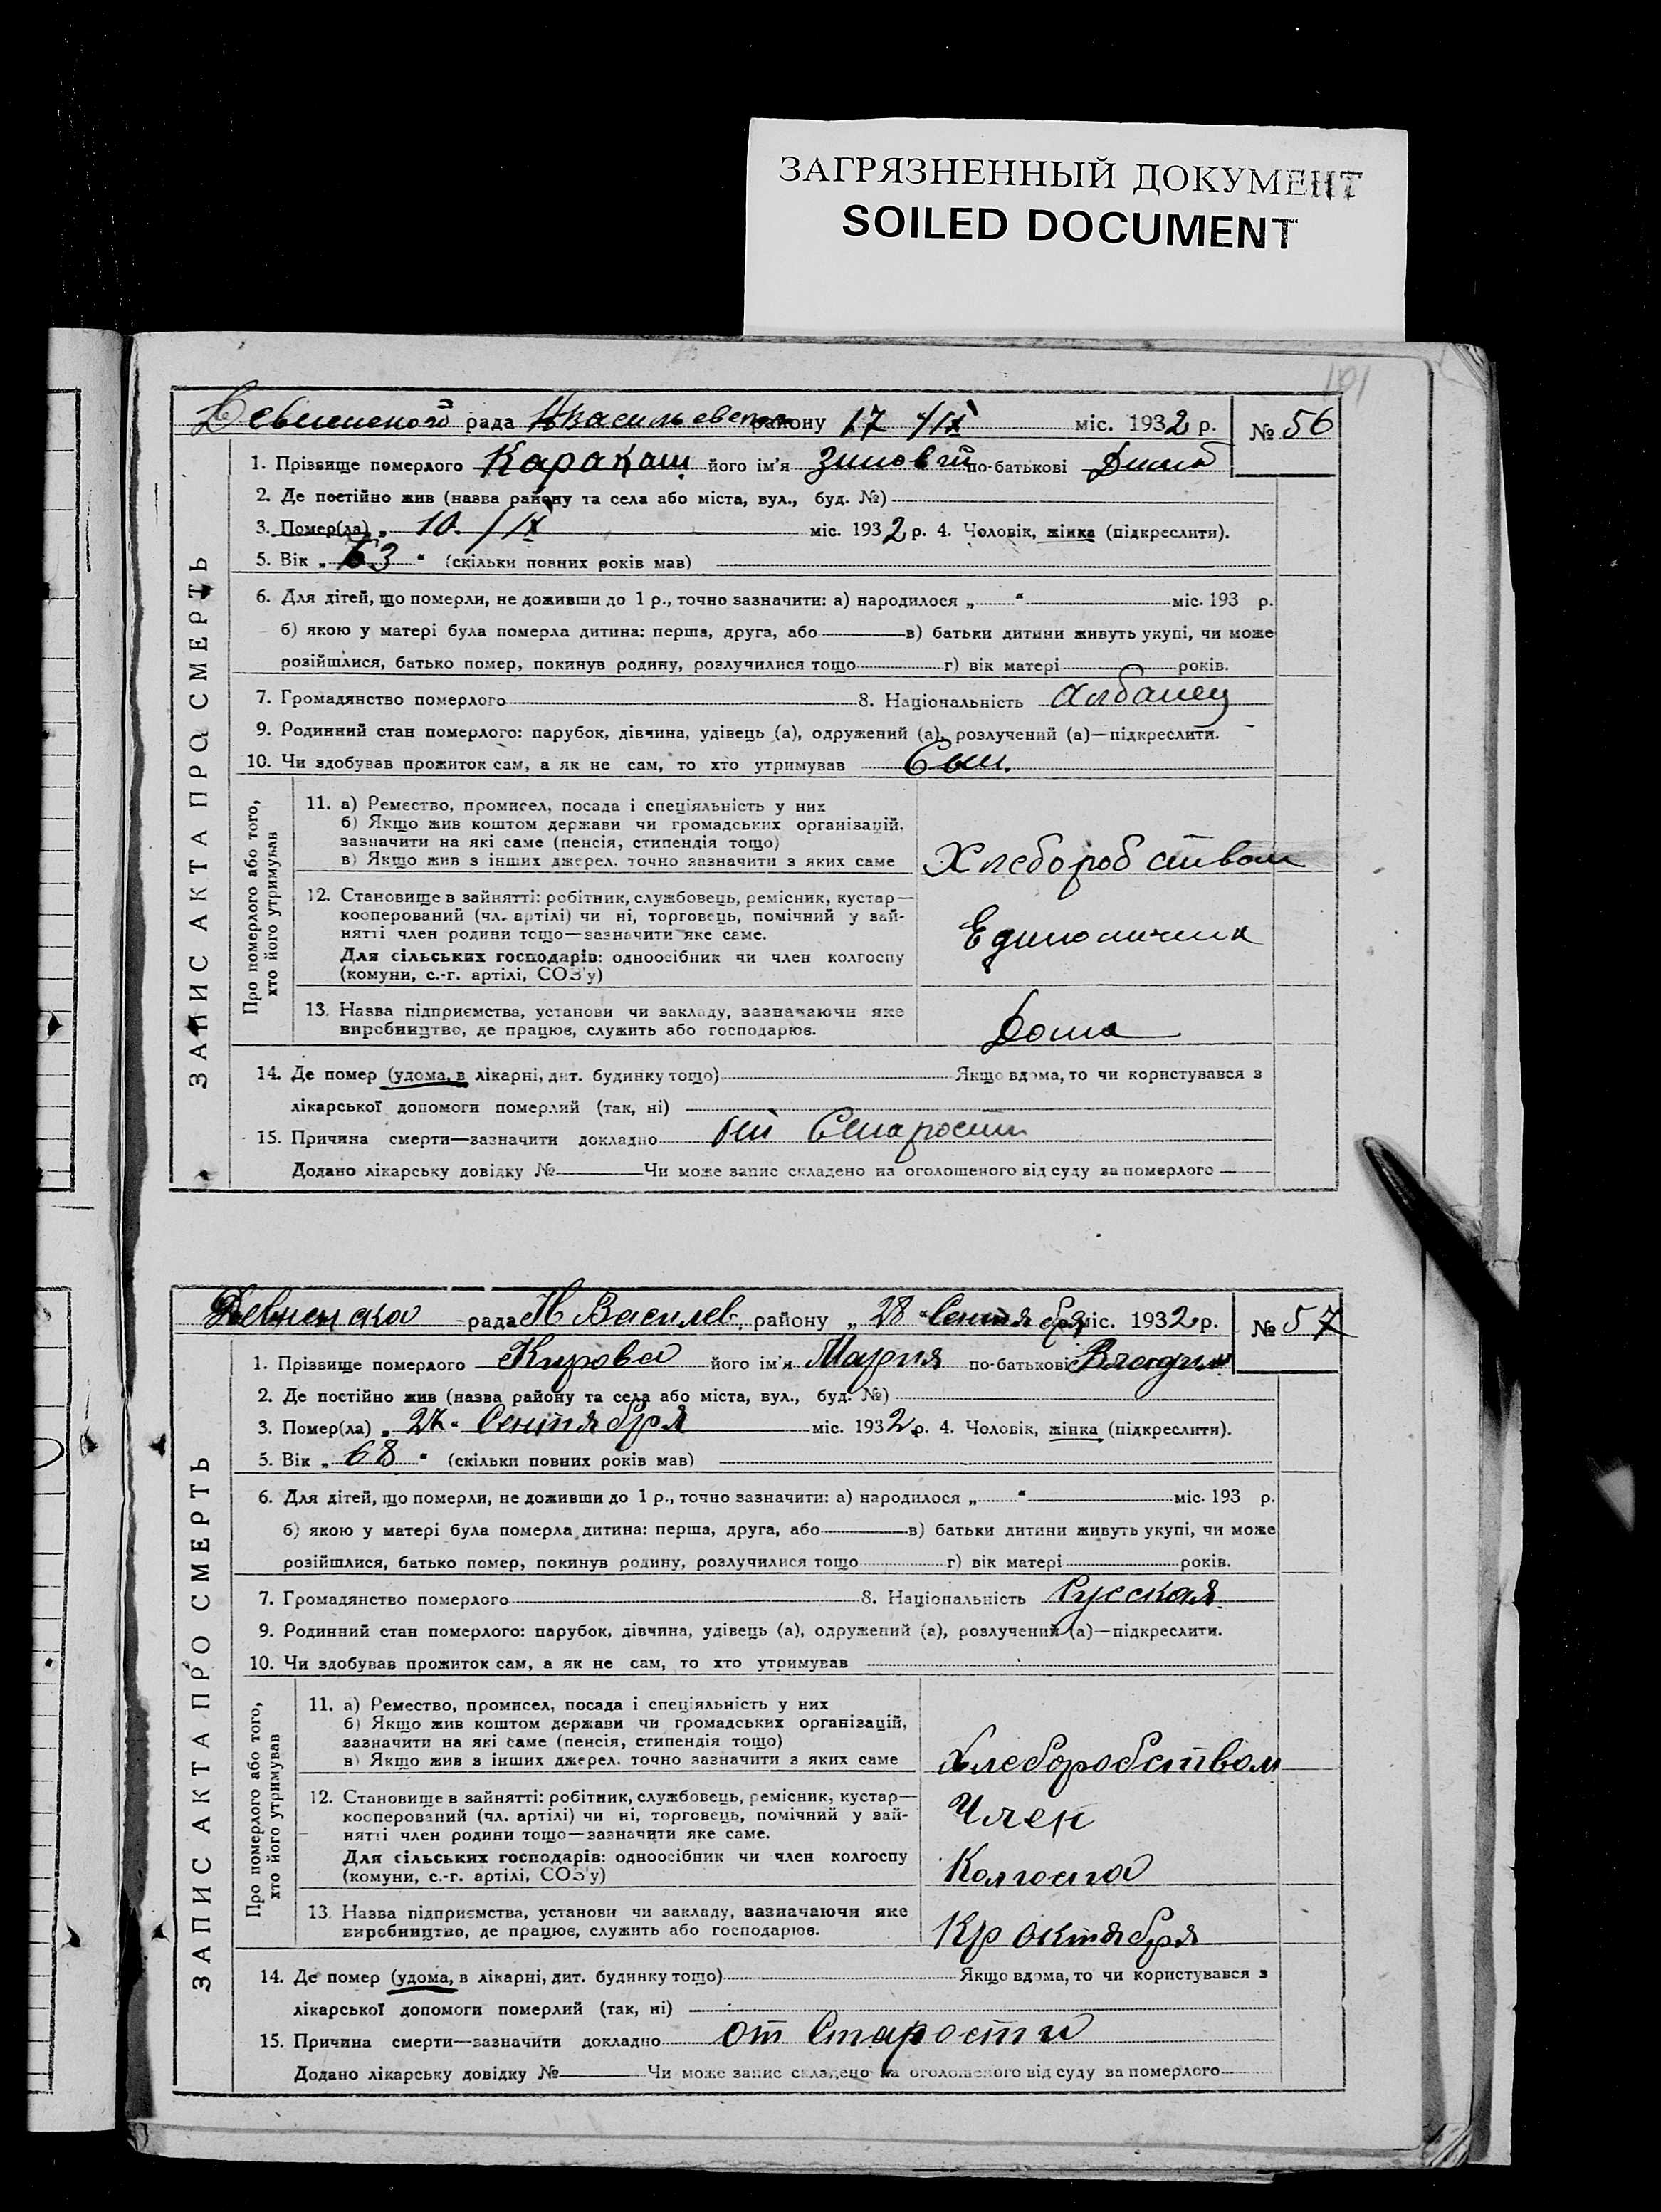 ЗАГРЯЗНЕННЫЙ ДОКУМЕНТ
SOILED DOCUMENT
101
Девненской рада Нвасильевск району 17 /IX міс. 1932 р. № 56
1. Прізвище померлого Каракаш його ім'я Зиновій по-батькові Дмит
2. Де постійно жив (назва району та села або міста, вул., буд. №)
3. Помер(ла) „ 10 /IX міс. 1932 р. 4. Чоловік, жінка (підкреслити).
5. Вік „ 63 " (скільки повних років мав)
6. Для дітей, що померли, не доживши до 1 р., точно зазначити: а) народилося „ " міс. 193 р.
б) якою у матері була померла дитина: перша, друга, або в) батьки дитини живуть укупі, чи може
розійшлися, батько помер, покинув родину, розлучилися тощо г) вік матері років.
7. Громадянство померлого 8. Національність Албанец
9. Родинний стан померлого: парубок, дівчина, удівець (а), одружений (а), розлучений (а)—підкреслити.
10. Чи здобував прожиток сам, а як не сам, то хто утримував Сам.
ЗАПИС АКТА ПРО СМЕРТЬ
Про померлого або того,
хто його утримував
11. а) Ремество, промисел, посада і спеціяльність у них
б) Якщо жив коштом держави чи громадських організацій,
зазначити на які саме (пенсія, стипендія тощо)
в) Якщо жив з інших джерел. точно зазначити з яких саме Хлеборобством
12. Становище в зайнятті: робітник, службовець, ремісник, кустар—
кооперований (чл. артілі) чи ні, торговець, помічний у зай-
нятті член родини тощо—зазначити яке саме. Единоличник
Для сільських господарів: одноосібник чи член колгоспу
(комуни, с.-г. артілі, СОЗ'у)
13. Назва підприємства, установи чи закладу, зазначаючи яке
виробництво, де працює, служить або господарює. Дома
14. Де помер (удома, в лікарні, дит. будинку тощо) Якщо вдома, то чи користувався з
лікарської допомоги померлий (так, ні)
15. Причина смерти—зазначити докладно от Старости
Додано лікарську довідку № Чи може запис складено на оголошеного від суду за померлого
Девненска рада Н Василев. району „ 28 " Сентября міс. 1932 р. № 57
1. Прізвище померлого Кирова його ім'я Мария по-батькові Владим
2. Де постійно жив (назва району та села або міста, вул., буд. №)
3. Помер(ла) „ 27 " Сентября міс. 1932 р. 4. Чоловік, жінка (підкреслити).
5. Вік „ 68 " (скільки повних років мав)
6. Для дітей, що померли, не доживши до 1 р., точно зазначити: а) народилося „ " міс. 193 р.
б) якою у матері була померла дитина: перша, друга, або в) батьки дитини живуть укупі, чи може
розійшлися, батько помер, покинув родину, розлучилися тощо г) вік матері років.
7. Громадянство померлого 8. Національність Русская
9. Родинний стан померлого: парубок, дівчина, удівець (а), одружений (а), розлучений (а)—підкреслити.
10. Чи здобував прожиток сам, а як не сам, то хто утримував
ЗАПИС АКТА ПРО СМЕРТЬ
Про померлого або того,
хто його утримував
11. а) Ремество, промисел, посада і спеціяльність у них
б) Якщо жив коштом держави чи громадських організацій,
зазначити на які саме (пенсія, стипендія тощо)
в) Якщо жив з інших джерел. точно зазначити з яких саме Хлеборобством
12. Становище в зайнятті: робітник, службовець, ремісник, кустар—
кооперований (чл. артілі) чи ні, торговець, помічний у зай- Член
нятті член родини тощо—зазначити яке саме.
Для сільських господарів: одноосібник чи член колгоспу
(комуни, с.-г. артілі, СОЗ'у) Колгоспа
13. Назва підприємства, установи чи закладу, зазначаючи яке
виробництво, де працює, служить або господарює. Кр октября
14. Де помер (удома, в лікарні, дит. будинку тощо) Якщо вдома, то чи користувався з
лікарської допомоги померлий (так, ні)
15. Причина смерти—зазначити докладно от Старости
Додано лікарську довідку № Чи може запис складено на оголошеного від суду за померлого